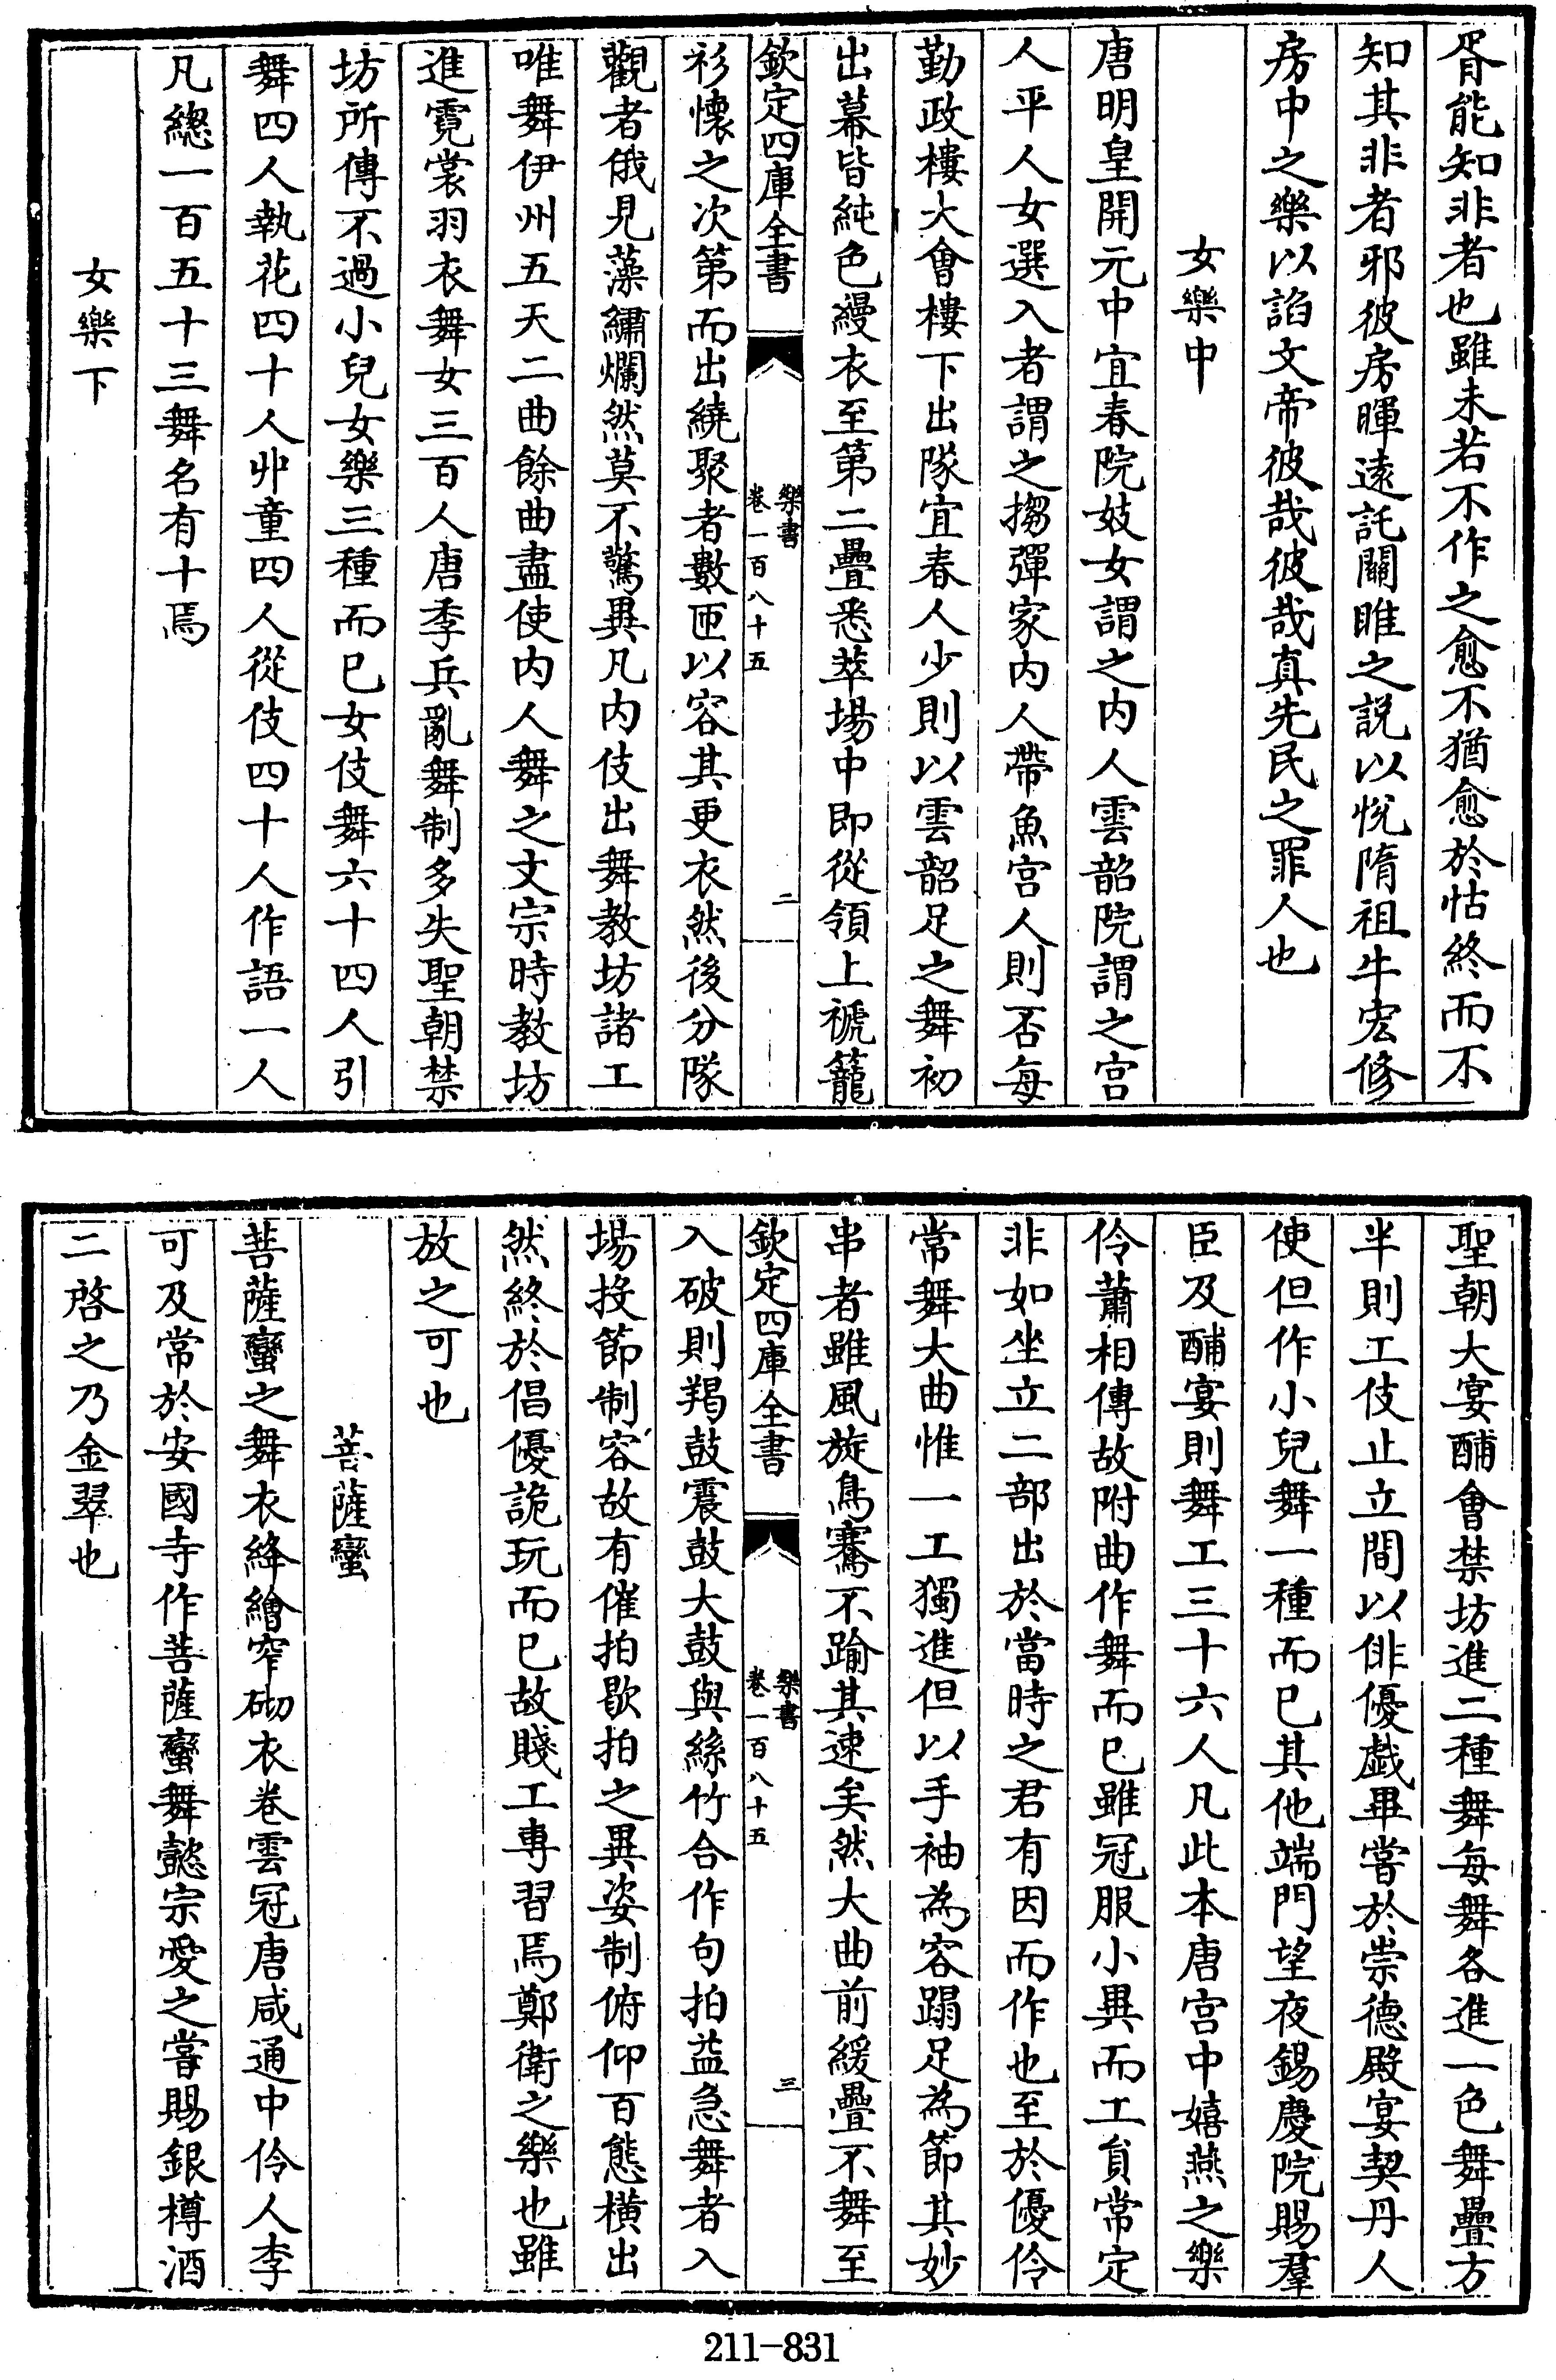 胥能知非者也雖未若不作之愈不猶愈於怙終而不
知其非者邪彼房暉遠託關雎之說以悅隋祖牛宏修
房中之樂以諂文帝彼哉彼哉真先民之罪人也
女樂中
唐明皇開元中宜春院妓女謂之内人雲韶院謂之宫
人平人女選入者謂之搊彈家内人帶魚宫人則否每
勤政樓大會樓下出隊宜春人少則以雲韶足之舞初
出幕皆純色縵衣至第二疊悉萃場中即從領上褫籠
欽定四庫全書
樂書
卷一百八十五
二
衫懷之次第而出繞聚者數匝以容其更衣然後分隊
觀者俄見藻繡爛然莫不驚異凡内伎出舞教坊諸工
唯舞伊州五天二曲餘曲盡使内人舞之文宗時教坊
進霓裳羽衣舞女三百人唐季兵亂舞制多失聖朝禁
坊所傳不過小兒女樂三種而已女伎舞六十四人引
舞四人執花四十人丱童四人從伎四十人作語一人
凡總一百五十三舞名有十焉
女樂下
聖朝大宴酺會禁坊進二種舞每舞各進一色舞疊方
半則工伎止立間以俳優戯畢嘗於崇德殿宴契丹人
使但作小兒舞一種而已其他端門望夜錫慶院賜羣
臣及酺宴則舞工三十六人凡此本唐宫中嬉燕之樂
伶蕭相傳故附曲作舞而已雖冠服小異而工貟常定
非如坐立二部出於當時之君有因而作也至於優伶
常舞大曲惟一工獨進但以手袖為容蹋足為節其妙
串者雖風旋鳥騫不踰其速矣然大曲前緩疊不舞至
欽定四庫全書
樂書
卷一百八十五
三
入破則羯鼓震鼓大鼓與絲竹合作句拍益急舞者入
場投節制容故有催拍歇拍之異姿制俯仰百態橫出
然終於倡優詭玩而已故賤工専習焉鄭衛之樂也雖
放之可也
菩薩蠻
菩薩蠻之舞衣絳繒窄砌衣卷雲冠唐咸通中伶人李
可及常於安國寺作菩薩蠻舞懿宗愛之嘗賜銀樽酒
二啓之乃金翠也
211-831